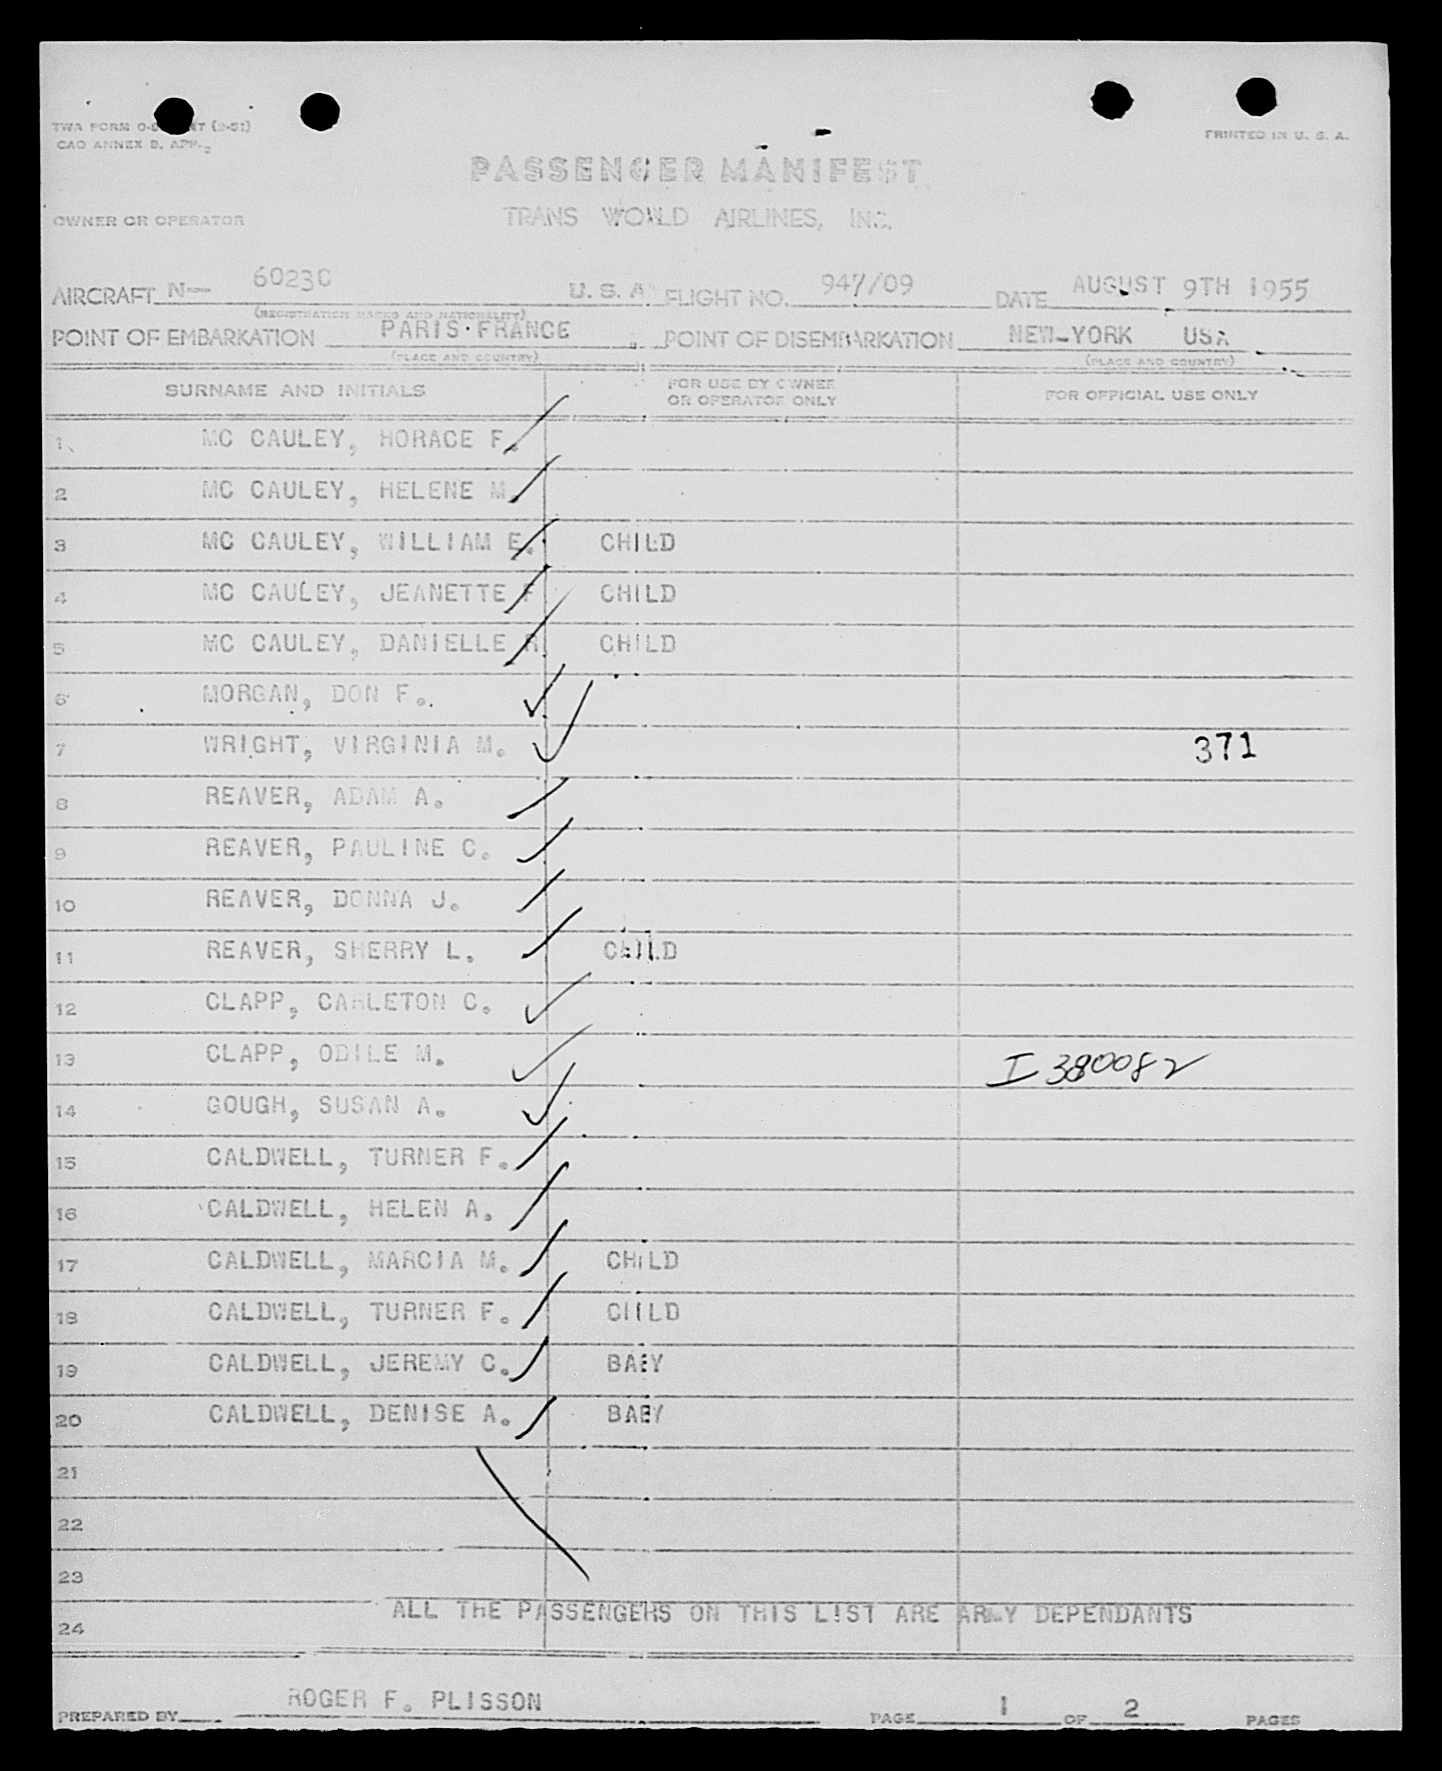 TWA FORM O-8 NT (2-51)
CAO ANNEX B, APP. 2
PRINTED IN U. S. A.
PASSENGER MANIFEST
OWNER OR OPERATOR TRANS WORLD AIRLINES, INC.
AIRCRAFT N-- 6023C U. S. A. FLIGHT NO. 947/09 DATE AUGUST 9TH 1955
(REGISTRATION MARKS AND NATIONALITY)
POINT OF EMBARKATION PARIS-FRANCE POINT OF DISEMBARKATION NEW-YORK USA
(PLACE AND COUNTRY) (PLACE AND COUNTRY)
SURNAME AND INITIALS FOR USE BY OWNER OR OPERATOR ONLY FOR OFFICIAL USE ONLY
1 MC CAULEY, HORACE F.
2 MC CAULEY, HELENE M.
3 MC CAULEY, WILLIAM E. CHILD
4 MC CAULEY, JEANETTE F CHILD
5 MC CAULEY, DANIELLE R CHILD
6 MORGAN, DON F.
7 WRIGHT, VIRGINIA M. 371
8 REAVER, ADAM A.
9 REAVER, PAULINE C.
10 REAVER, DONNA J.
11 REAVER, SHERRY L. CHILD
12 CLAPP, CARLETON C.
13 CLAPP, ODILE M. I 380082
14 GOUGH, SUSAN A.
15 CALDWELL, TURNER F.
16 CALDWELL, HELEN A.
17 CALDWELL, MARCIA M. CHILD
18 CALDWELL, TURNER F. CHILD
19 CALDWELL, JEREMY C. BABY
20 CALDWELL, DENISE A. BABY
21
22
23
ALL THE PASSENGERS ON THIS LIST ARE ARMY DEPENDANTS
24
PREPARED BY ROGER F. PLISSON PAGE 1 OF 2 PAGES